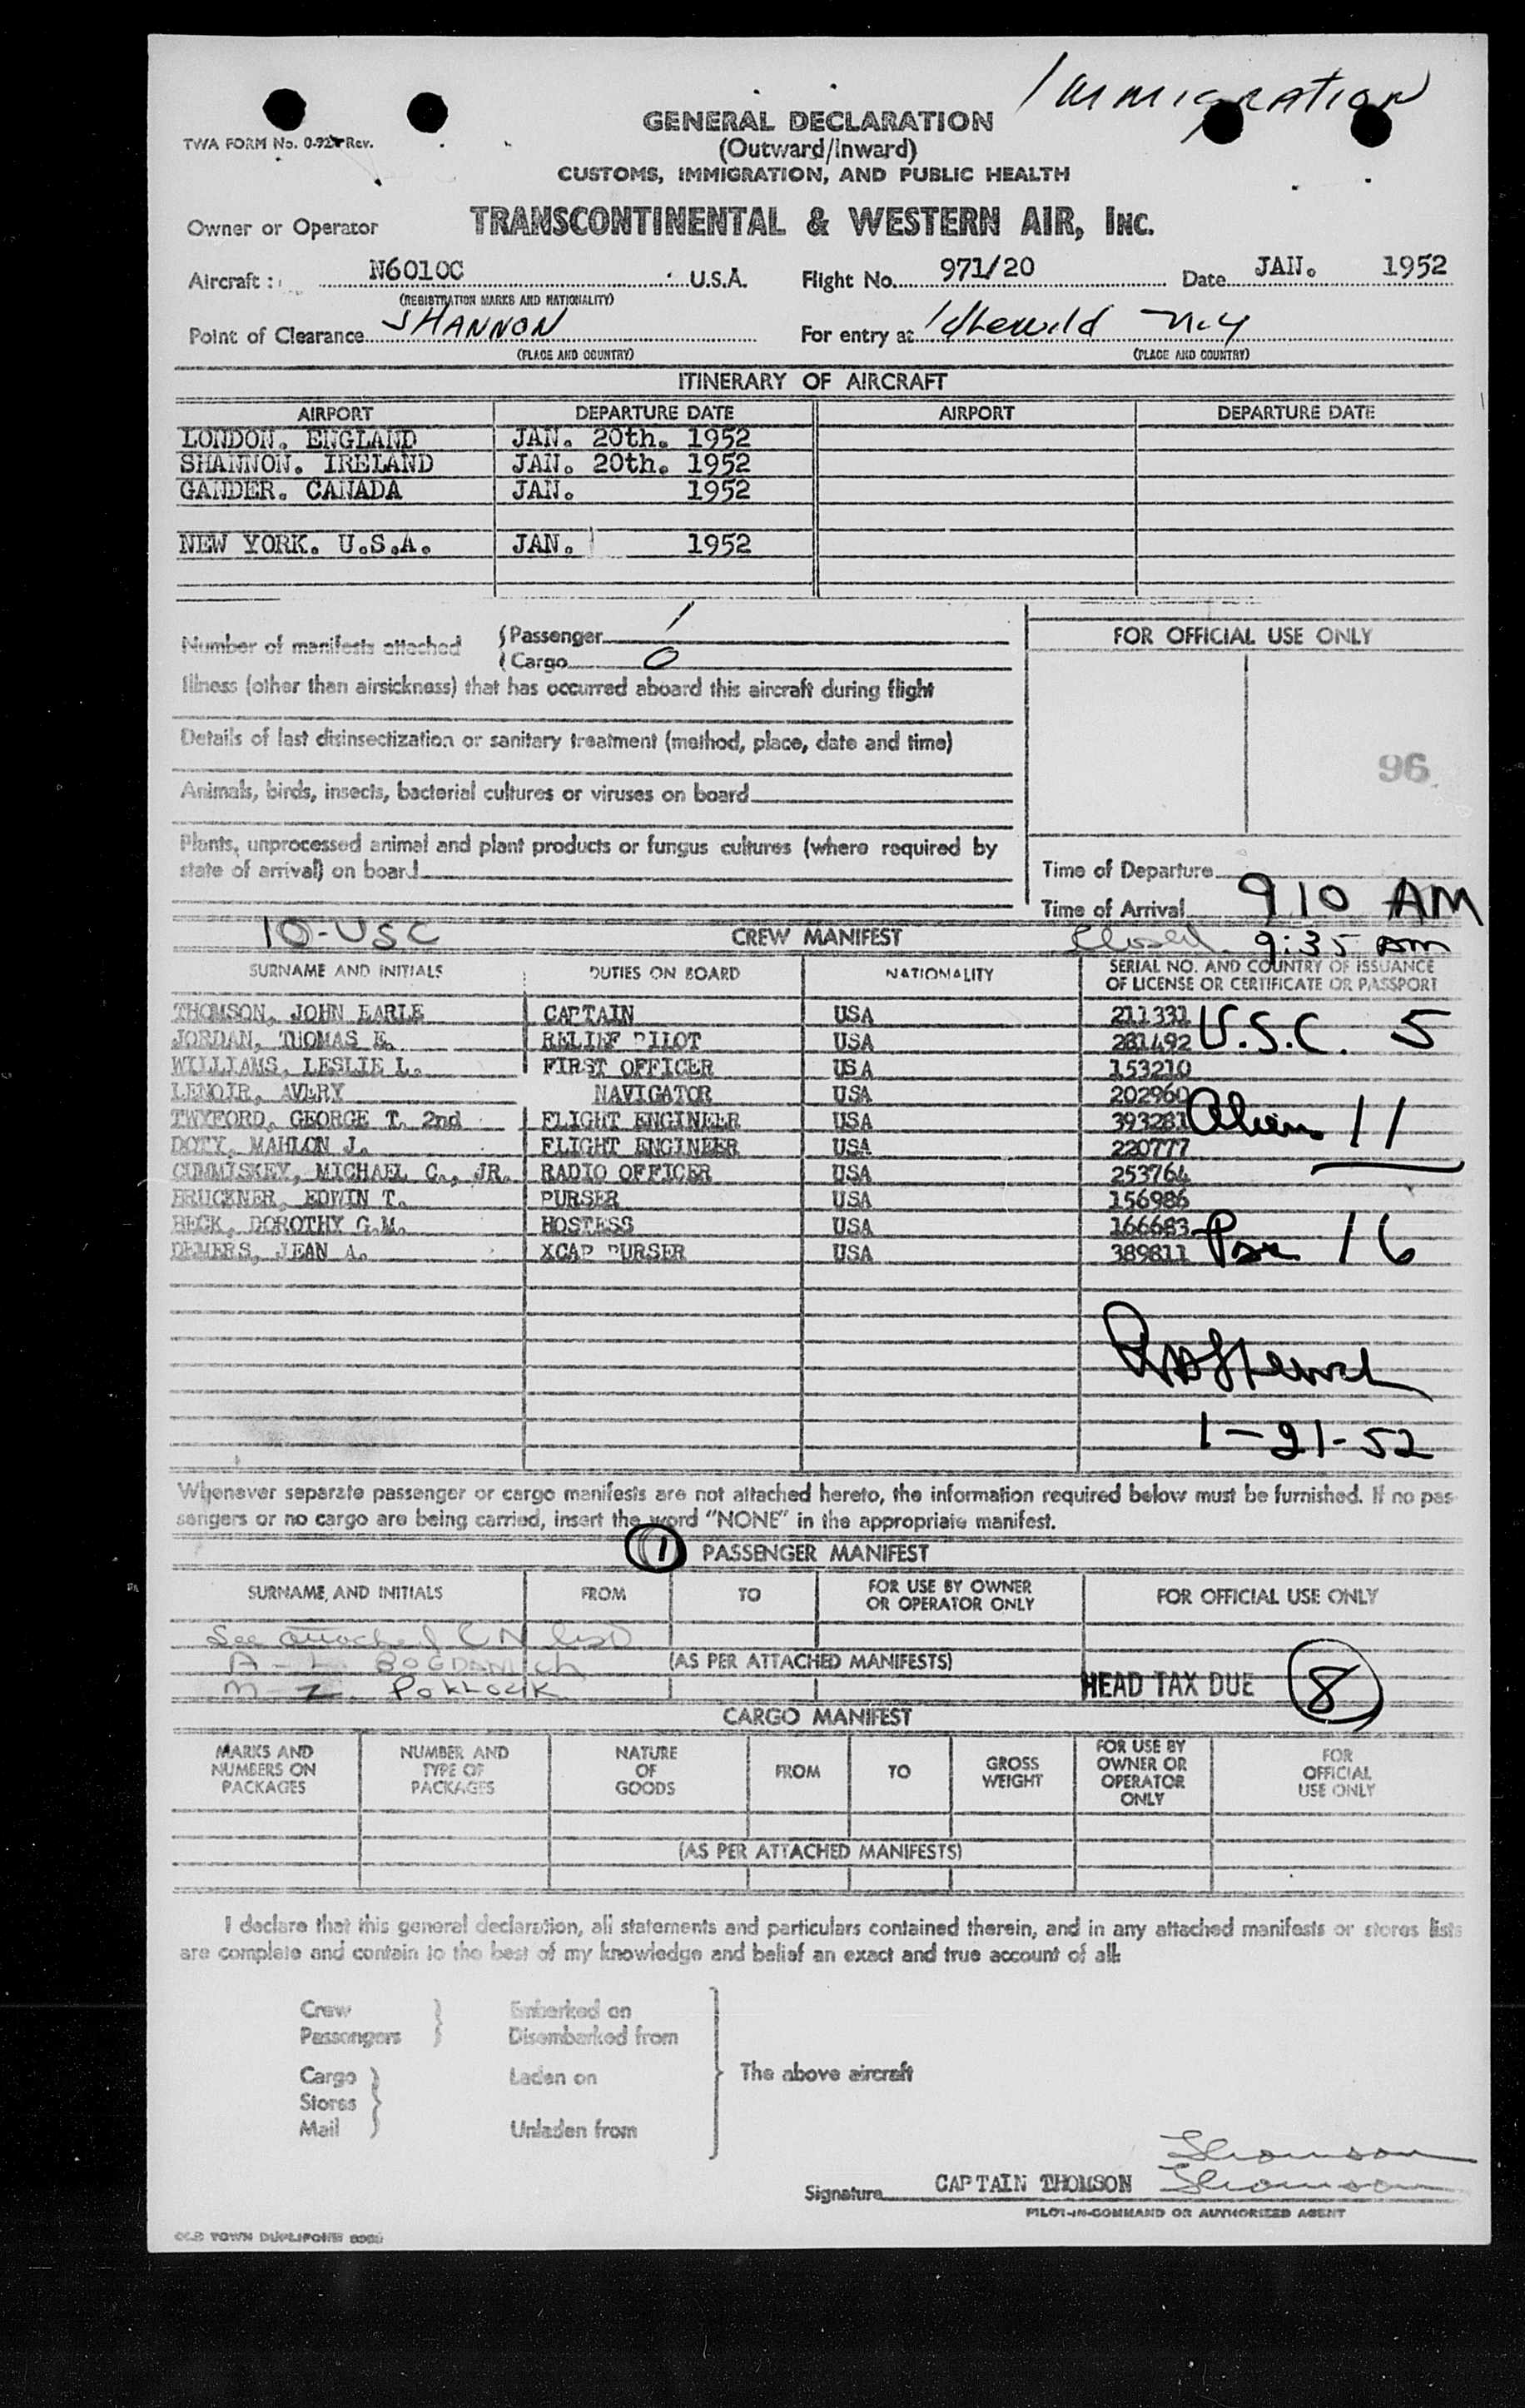 Immigration
TWA FORM No. 0-92 Rev.
GENERAL DECLARATION
(Outward/Inward)
CUSTOMS, IMMIGRATION, AND PUBLIC HEALTH
Owner or Operator TRANSCONTINENTAL & WESTERN AIR, INC.
Aircraft : N6010C U.S.A. Flight No. 971/20 Date JAN. 1952
(REGISTRATION MARKS AND NATIONALITY)
Point of Clearance SHANNON For entry at Idlewild N.Y
(PLACE AND COUNTRY) (PLACE AND COUNTRY)
ITINERARY OF AIRCRAFT
AIRPORT DEPARTURE DATE AIRPORT DEPARTURE DATE
LONDON. ENGLAND JAN. 20th. 1952
SHANNON. IRELAND JAN. 20th. 1952
GANDER. CANADA JAN. 1952
NEW YORK. U.S.A. JAN. 1952
Number of manifests attached { Passenger 1
{ Cargo 0
FOR OFFICIAL USE ONLY
Illness (other than airsickness) that has occurred aboard this aircraft during flight
Details of last disinsectization or sanitary treatment (method, place, date and time)
96
Animals, birds, insects, bacterial cultures or viruses on board
Plants, unprocessed animal and plant products or fungus cultures (where required by
state of arrival) on board
Time of Departure
Time of Arrival 910 AM
10-USC CREW MANIFEST Closed 9:35 am
SURNAME AND INITIALS DUTIES ON BOARD NATIONALITY SERIAL NO. AND COUNTRY OF ISSUANCE
OF LICENSE OR CERTIFICATE OR PASSPORT
THOMSON, JOHN EARLE CAPTAIN USA 211331
JORDAN, THOMAS E. RELIEF PILOT USA 281492 U.S.C. 5
WILLIAMS, LESLIE L. FIRST OFFICER USA 153210
LENOIR, AVERY NAVIGATOR USA 202960
TWYFORD, GEORGE T. 2nd FLIGHT ENGINEER USA 393281 Alien 11
DOTY, MAHLON J. FLIGHT ENGINEER USA 220777
CUMMISKEY, MICHAEL C., JR. RADIO OFFICER USA 253764
BRUCKNER, EDWIN T. PURSER USA 156986
BECK, DOROTHY G.M. HOSTESS USA 166683
DEMERS, JEAN A. XCAP PURSER USA 389811 Psr 16
1-21-52
Whenever separate passenger or cargo manifests are not attached hereto, the information required below must be furnished. If no pas-
sengers or no cargo are being carried, insert the word "NONE" in the appropriate manifest.
1 PASSENGER MANIFEST
SURNAME, AND INITIALS FROM TO FOR USE BY OWNER
OR OPERATOR ONLY FOR OFFICIAL USE ONLY
See attached CN list
A - L BOGDANVICH (AS PER ATTACHED MANIFESTS)
M - Z. Pollock HEAD TAX DUE 8
CARGO MANIFEST
MARKS AND
NUMBERS ON
PACKAGES
NUMBER AND
TYPE OF
PACKAGES
NATURE
OF
GOODS
FROM
TO
GROSS
WEIGHT
FOR USE BY
OWNER OR
OPERATOR
ONLY
FOR
OFFICIAL
USE ONLY
(AS PER ATTACHED MANIFESTS)
I declare that this general declaration, all statements and particulars contained therein, and in any attached manifests or stores lists
are complete and contain to the best of my knowledge and belief an exact and true account of all:
Crew } Embarked on
Passengers } Disembarked from
Cargo } Laden on The above aircraft
Stores
Mail } Unladen from
Thomson
Signature CAPTAIN THOMSON Thomson
PILOT-IN-COMMAND OR AUTHORIZED AGENT
OLD TOWN DUPLIFORMS